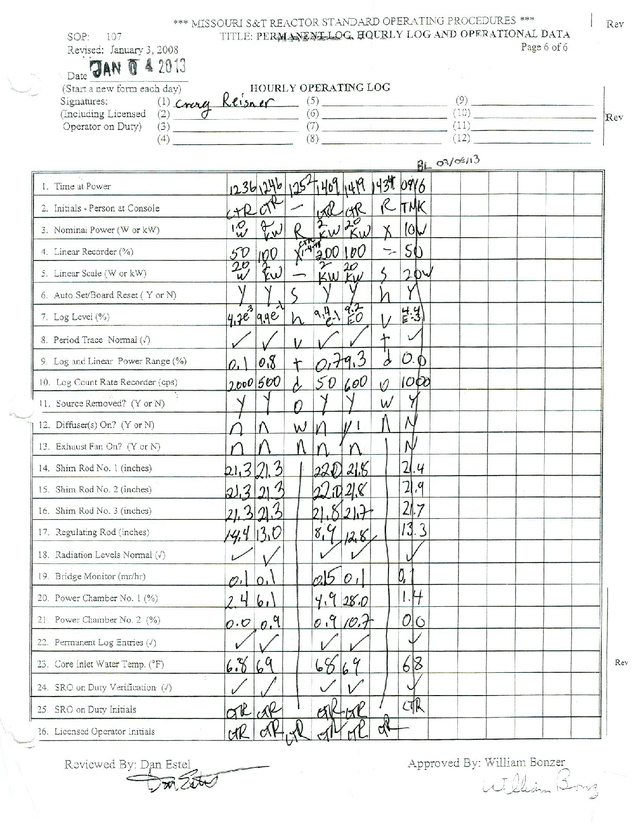 *** MISSOURI S&T REACTOR STANDARD OPERATING PROCEDURES ***
Rev
SOP: 107 TITLE: PERMANENT LOG, HOURLY LOG AND OPERATIONAL DATA
Revised: January 3, 2008 Page 6 of 6
Date JAN 04 2013
(Start a new form each day) HOURLY OPERATING LOG
Signatures: (1) Craig Reisner (5) (9)
(Including Licensed (2) (6) (10) Rev
Operator on Duty) (3) (7) (11)
(4) (8) (12)
BL
1. Time at Power 1236 1246 1252 1409 1419 1434 0916
2. Initials - Person at Console CTR CTR – CTR CTR R TMK
3. Nominal Power (W or kW) 10 W 2 kW R 2 kW 20 kW X 10W
4. Linear Recorder (%) 50 100 X 200 100 – 50
5. Linear Scale (W or kW) 20 W 2 kW – 2 kW 20 kW S 20W
6. Auto Set/Board Reset (Y or N) Y Y S Y Y h Y
7. Log Level (%) h U
8. Period Trace Normal (√) ✓ ✓ U ✓ ✓ t ✓
9. Log and Linear Power Range (%) 0.1 0.8 t 0.7 9.3 d 0.0
10. Log Count Rate Recorder (cps) 2000 500 d 50 600 O 1000
11. Source Removed? (Y or N) Y Y O Y Y W Y
12. Diffuser(s) On? (Y or N) n n w n n N
13. Exhaust Fan On? (Y or N) n n n n n N
14. Shim Rod No. 1 (inches) 21.3 21.3 22.0 21.8 21.4
15. Shim Rod No. 2 (inches) 21.3 21.3 22.0 21.8 21.9
16. Shim Rod No. 3 (inches) 21.3 21.3 21.8 21.7 21.7
17. Regulating Rod (inches) 14.4 13.0 8.9 12.8 13.3
18. Radiation Levels Normal (√) ✓ ✓ ✓ ✓ ✓
19. Bridge Monitor (mr/hr) 0.1 0.1 0.15 0.1 0.1
20. Power Chamber No. 1 (%) 2.4 6.1 4.9 28.0 1.4
21. Power Chamber No. 2 (%) 0.0 0.9 0.9 10.7 0.0
22. Permanent Log Entries (√) ✓ ✓ ✓ ✓ ✓
23. Core Inlet Water Temp. (°F) 6.8 69 68 69 68
Rev
24. SRO on Duty Verification (√) ✓ ✓ ✓ ✓ ✓
25. SRO on Duty Initials CTR CTR CTR CTR CTR
26. Licensed Operator Initials CTR CTR CTR CTR CTR CTR
Reviewed By: Dan Estel Approved By: William Bonzer
Dan Estel William Bonz